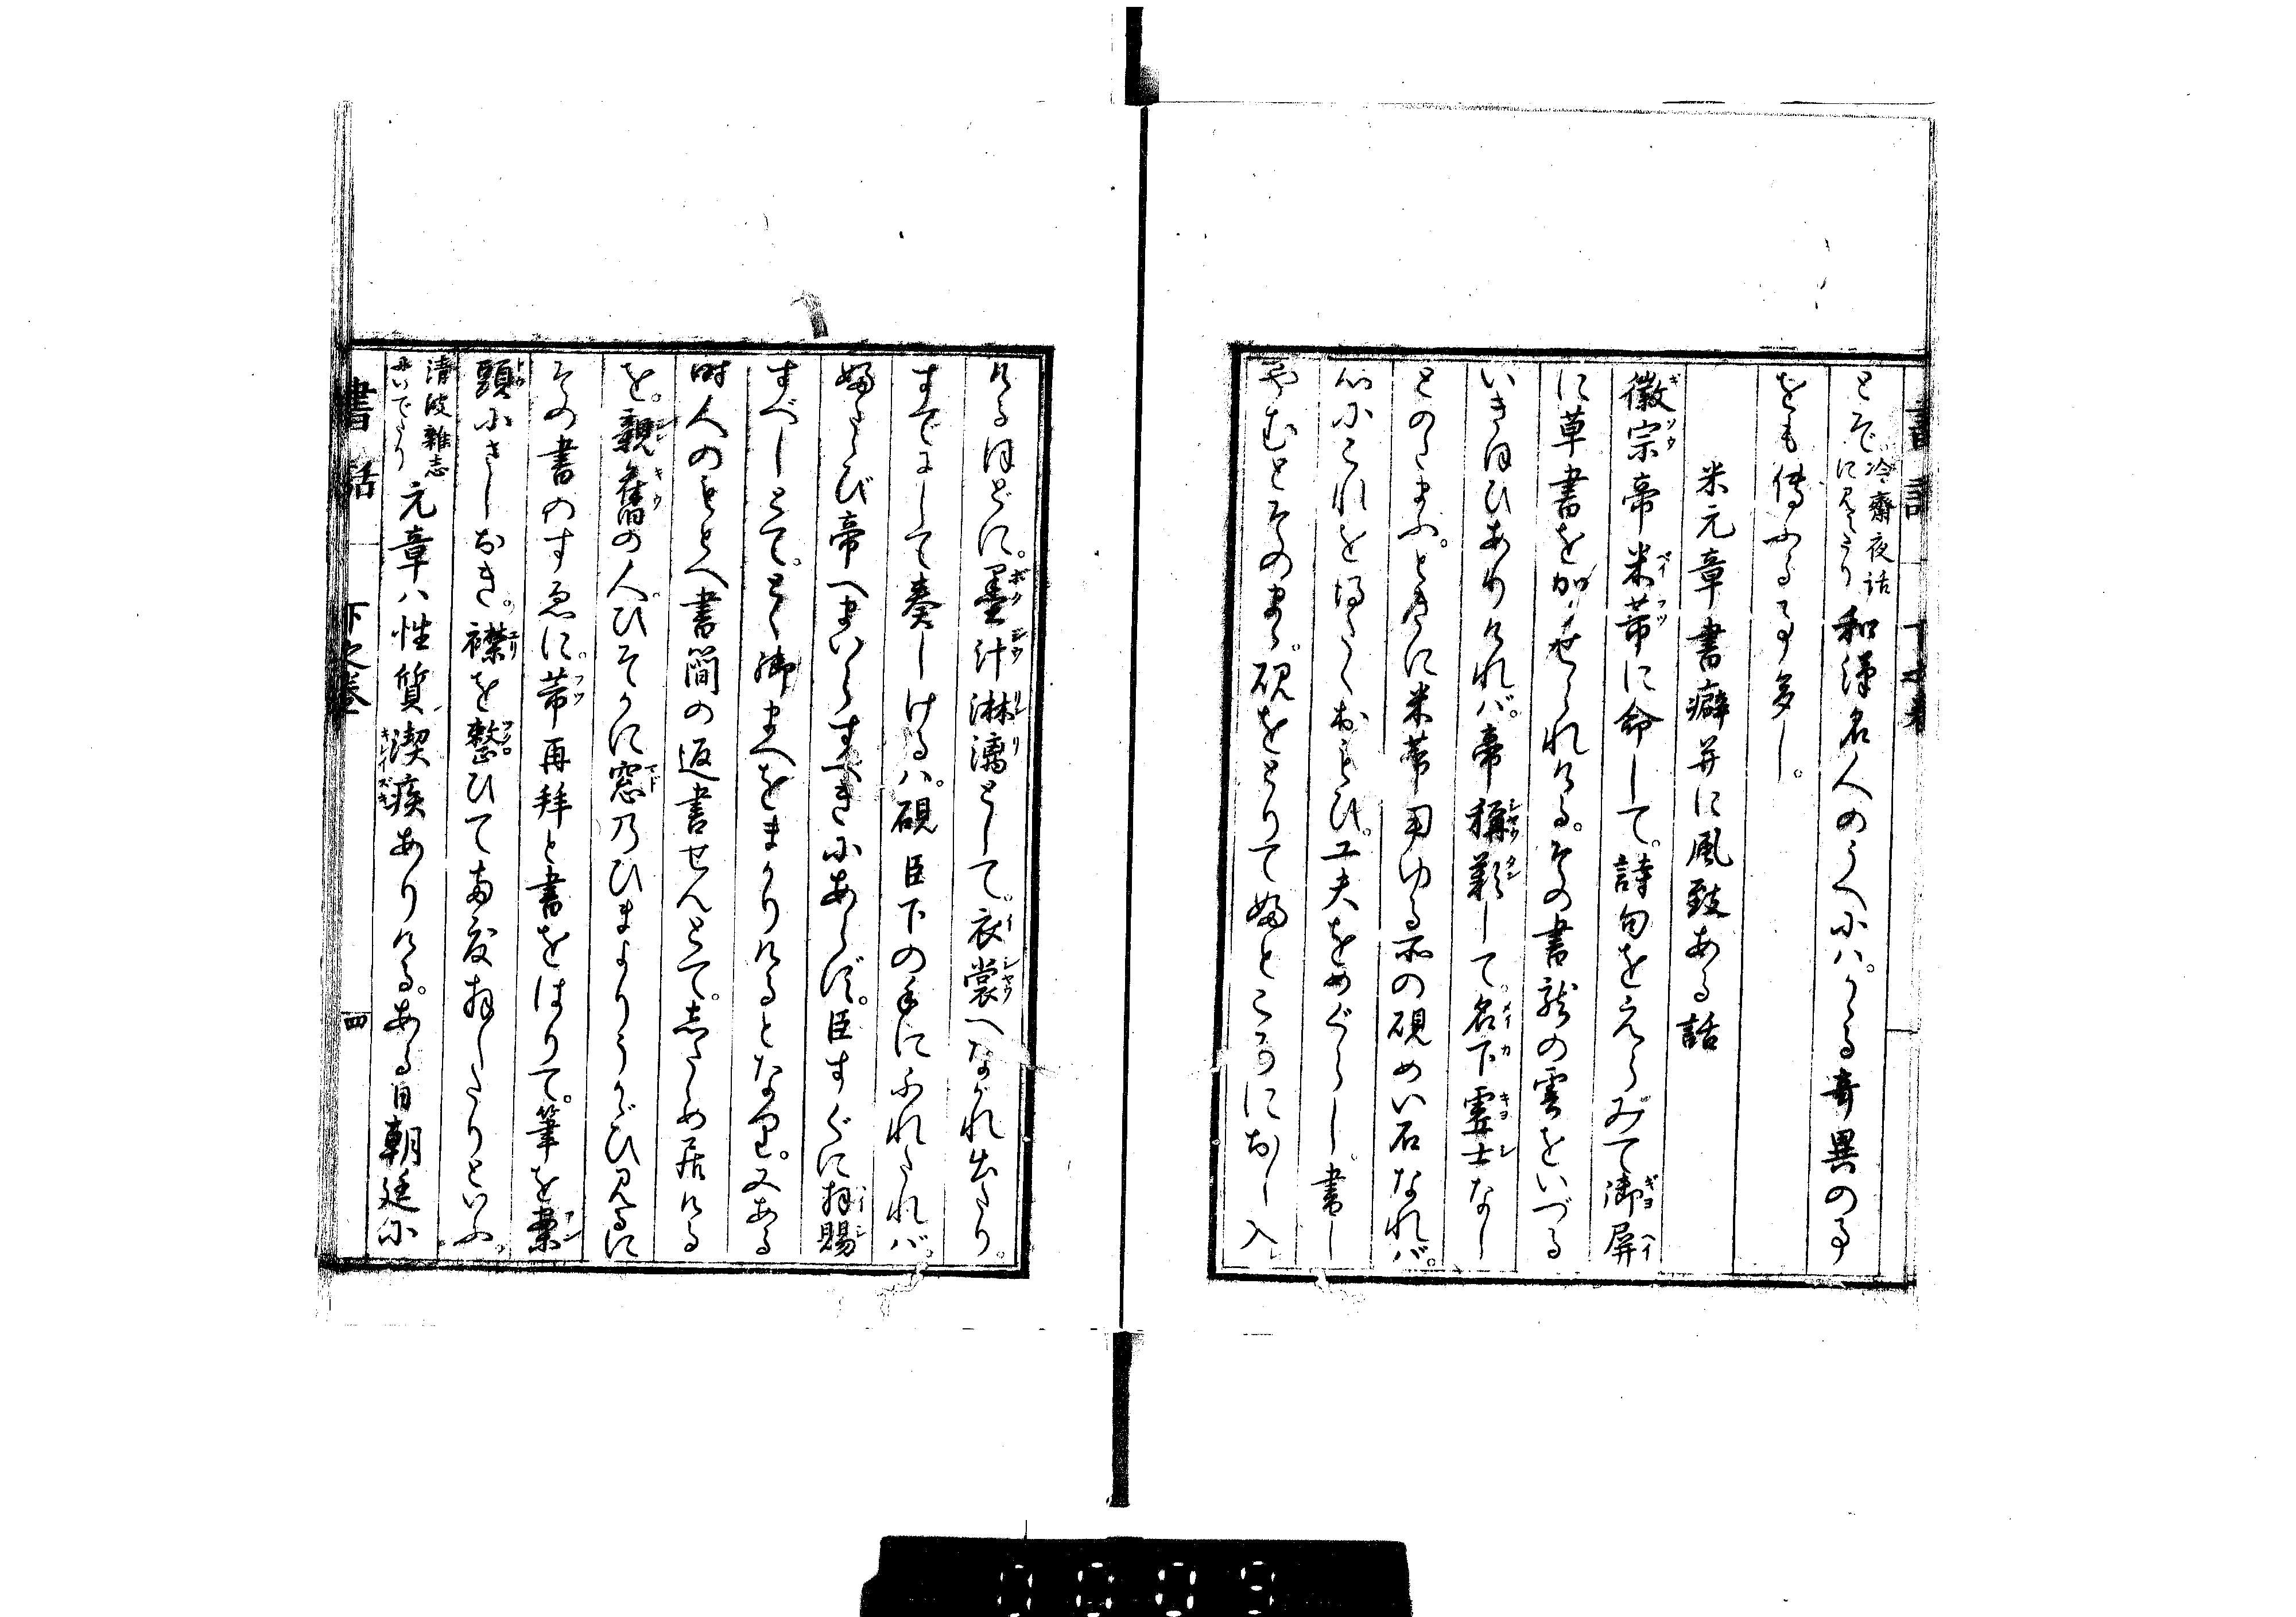 とぞ 冷齋夜話に見えたり 和漢名人のうへにハ。かゝる奇異の事
をも傳ふる事多し。
米元章書癖并に風致ある話
徽宗帝米芾に命して。詩句をえらみて御屏
に草書を加かせられける。その書龍の雲をいづる
いきほひありけれバ。帝稱歎して。名下虚士なし
とのたまふ。ときに米芾用ゆる所の硯めい石なれバ。
心にこれを得たくおもひ。工夫をめぐらし。書し
やむとそのまゝ。硯をとりて婦ところにおし入
けるほどに。墨汁淋漓として。衣裳へながれ出たり。
すでにして奏しけるハ。硯臣下の手にふれたれバ。
婦たゝび帝へまいらすべきにあらず。臣すぐに拜賜
すべしとて。とく御まへをまかりけるとなり。又ある
時人のもとへ書簡の返書せんとて。志たゝめ居ける
を。親舊の人。ひそかに窓乃ひまよりうかゞひ見るに
その書のすゑに。芾再拜と書をはりて。筆を案
頭にさしおき。襟を整ひて両度拜したりといふ。
清波雜志にいでたり 元章ハ性質潔疾ありける。ある日朝廷に
書話 下之卷 四